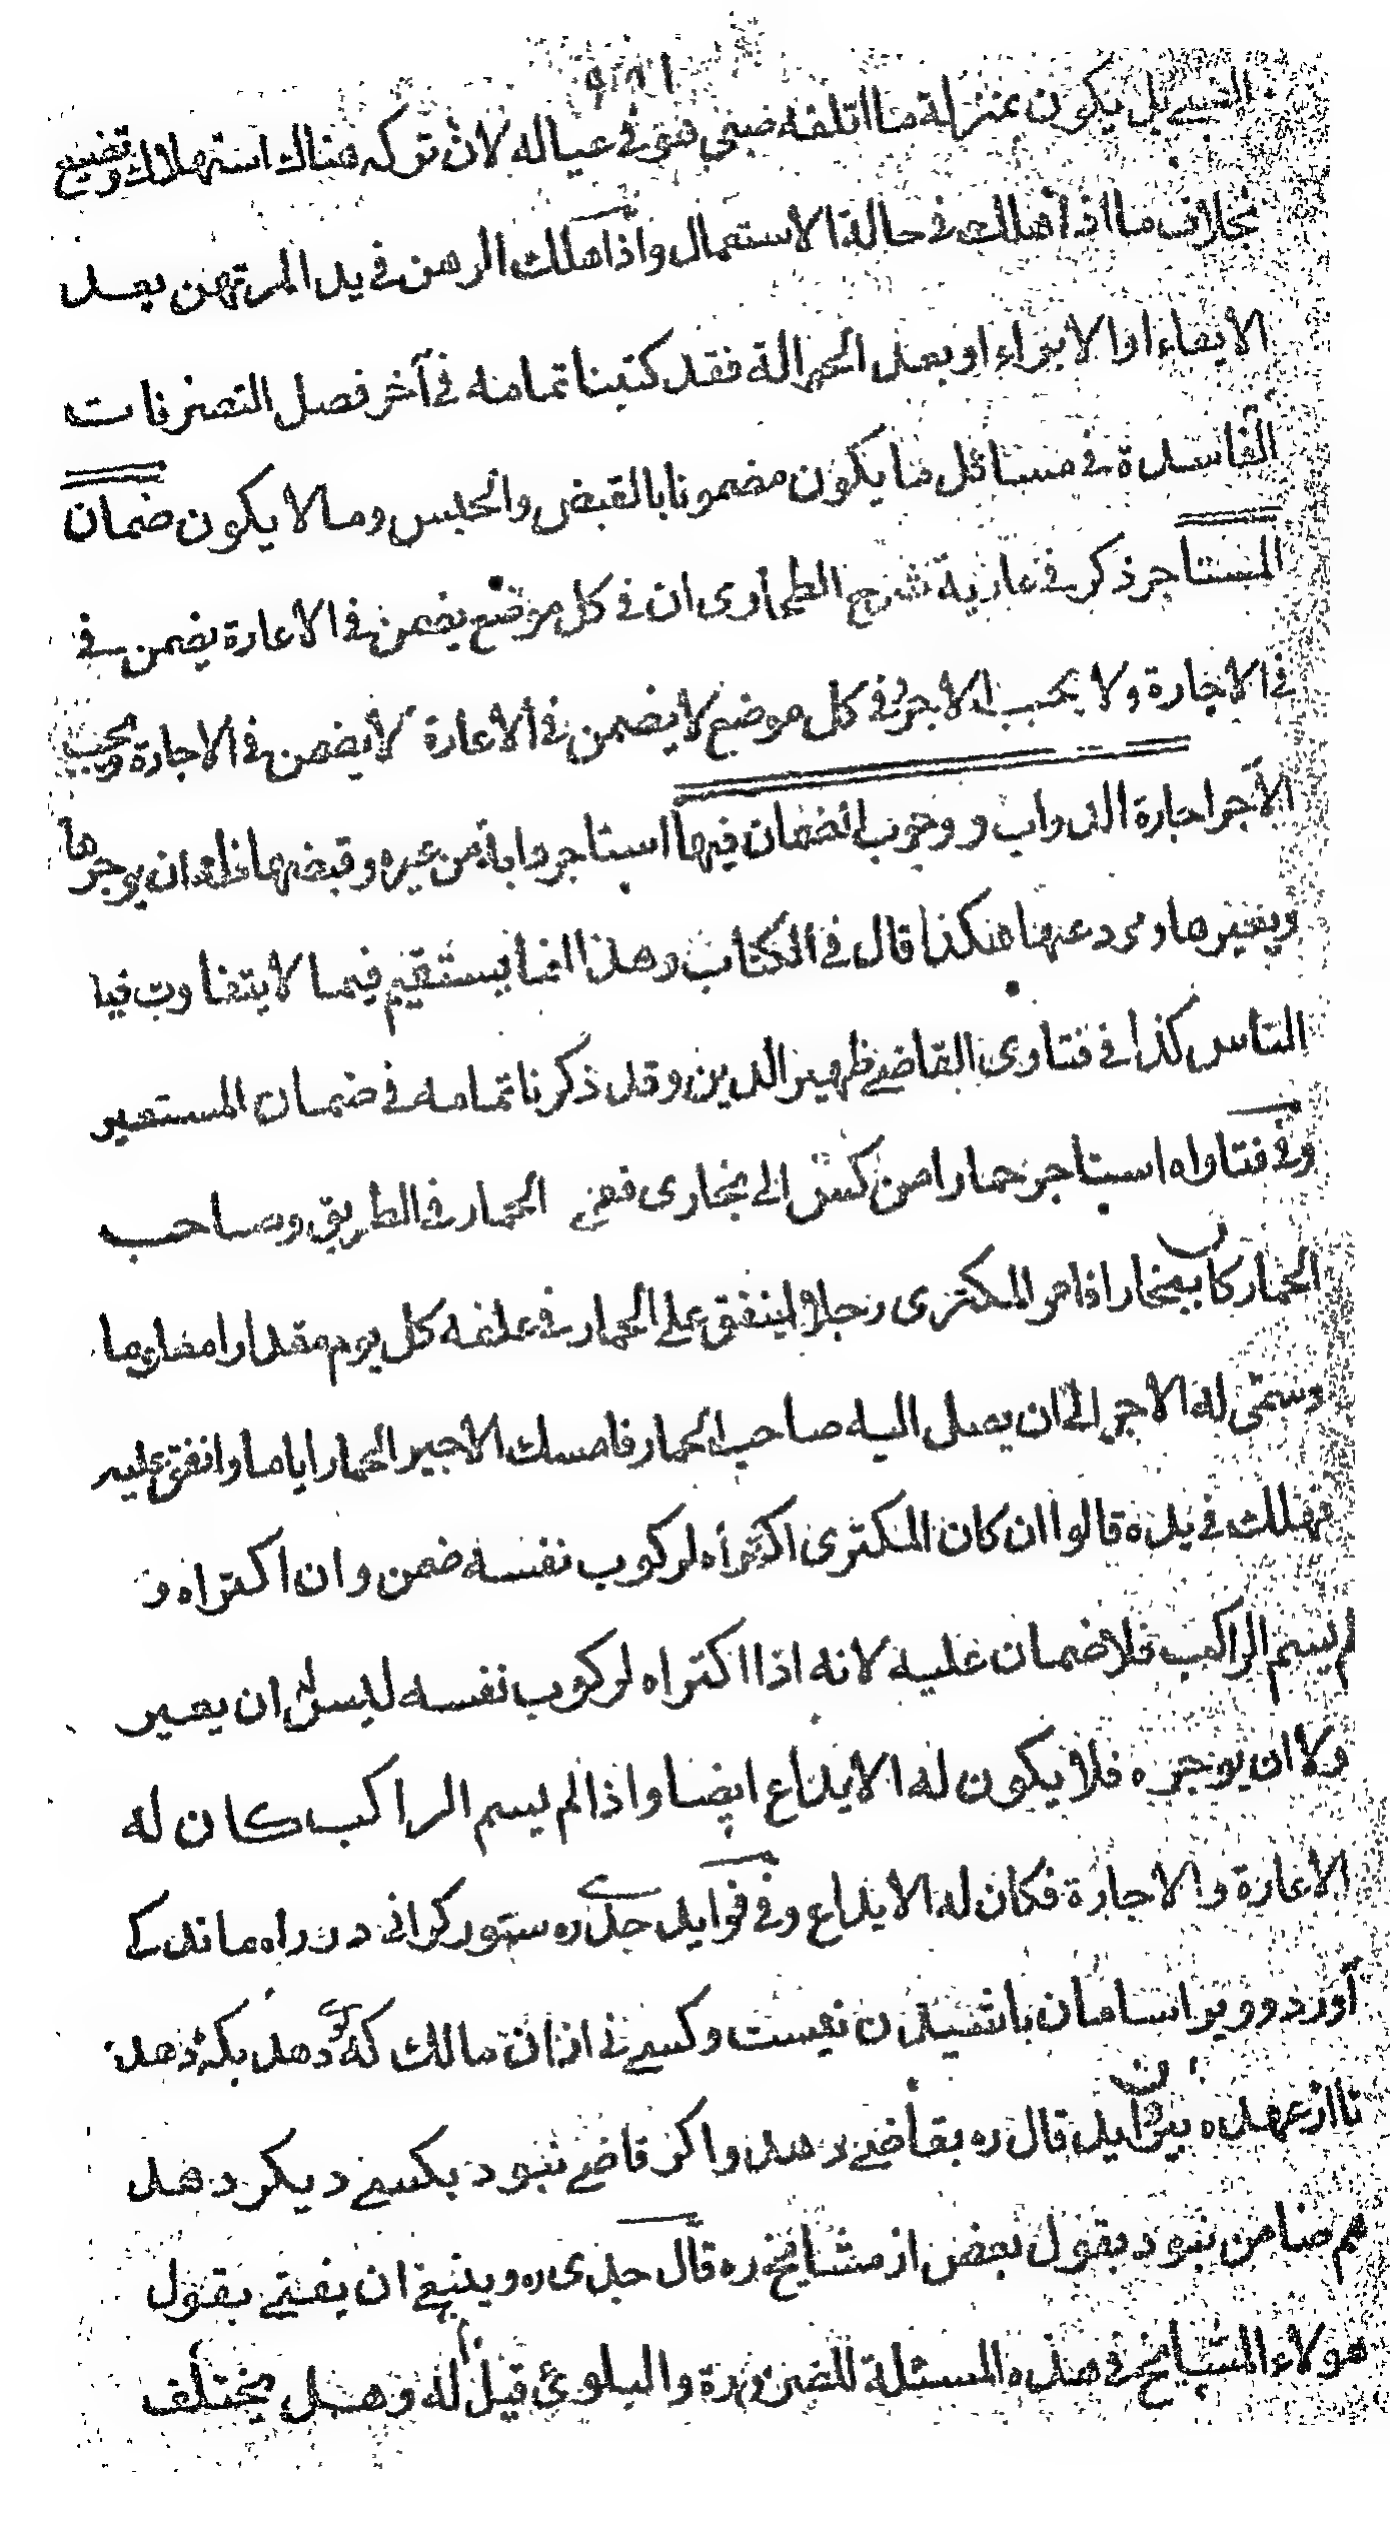 بل يكون بمنزلة ما اتلفه صبي هو في عياله لان تركه هناك استهلاك وتضييع
بخلاف ما اذا هلك في حالة الاستعمال واذا هلك الرهن في يد المرتهن بعد
الايفاء او الابراء او بعد الحوالة فقد كتبنا تمامه في آخر فصل التصرفات
الفاسدة في مسائل ما يكون مضمونا بالقبض والحبس وما لا يكون ضمان
المستاجر ذكر في عارية شرح الطحاوى ان في كل موضع يضمن في الاعارة يضمن في
في الاجارة ولا يجب الاجر وفي كل موضع لا يضمن في الاعارة لا يضمن في الاجارة ويجب
الاجر اجارة الدواب ووجوب الضمان فيها استاجر دابة من غيره وقبضها فله ان يوجرها
ويعيرها ويودعها هكذا قال في الكتاب وهذا انما يستقيم فيما لا يتفاوت فيه
الناس كذا في فتاوى القاضي ظهير الدين وقد ذكرنا تمامه في ضمان المستعير
وفي فتاواه استاجر حمارا من كش الى بخارى فعي الحمار في الطريق وصاحب
الحمار كان ببخارا فامر المكترى رجلا لينفق على الحمار في علفه كل يوم مقدارا معلوما
وسمى له الاجر الى ان يصل اليه صاحب الحمار فامسك الاجير الحمار اياما وانفق عليه
فهلك في يده قالوا ان كان المكترى اكتراه لركوب نفسه ضمن وان اكتراه و
لم يسم الراكب فلا ضمان عليه لانه اذا اكتراه لركوب نفسه ليس له ان يعير
ولا ان يوجره فلا يكون له الايداع ايضا واذا لم يسم الراكب كان له
الاعارة والاجارة فكان له الايداع وفي فوايد جدى ره ستور كرانى در راه ماند كے
آورد وويرا سامان باشيدن نيست وكسے نے از ان مالك كه بوى دهد بكه دهد
تا از عهده بيرون آيد قال ره بقاضے دهد واكر قاضے نبود بكسے ديكر دهد
هم ضامن نبود بقول بعض از مشايخ ره قال جدى ره وينبغي ان يفتے بقول
هولاء المشايخ في هذه المسئلة للضرورة والبلوى قيل له وهل يختلف